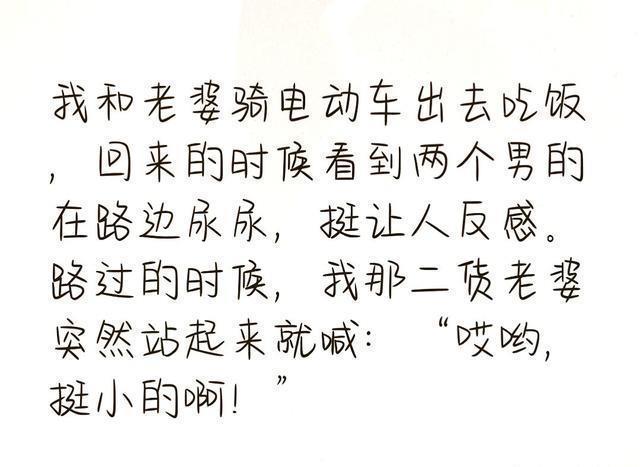 我和老婆骑电动车出去吃饭
，回来的时候看到两个男的
在路边尿尿，挺让人反感。
路过的时候，我那二货老婆
突然站起来就喊：“哎哟，
挺小的啊！”